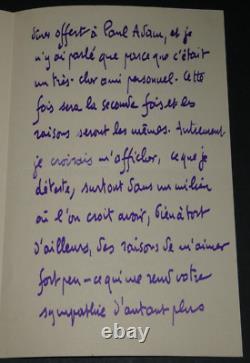 offert à Paul Adam, et je
n'y ai parlé que parce que c'était
un très-cher ami personnel. Cette
fois sera la seconde fois et les
raisons seront les mêmes. Autrement
je croirais m'afficher, ce que je
déteste, surtout dans un milieu
où l'on croit avoir, bien à tort
d'ailleurs, des raisons de m'aimer
fort peu — ce qui me rend votre
sympathie d'autant plus